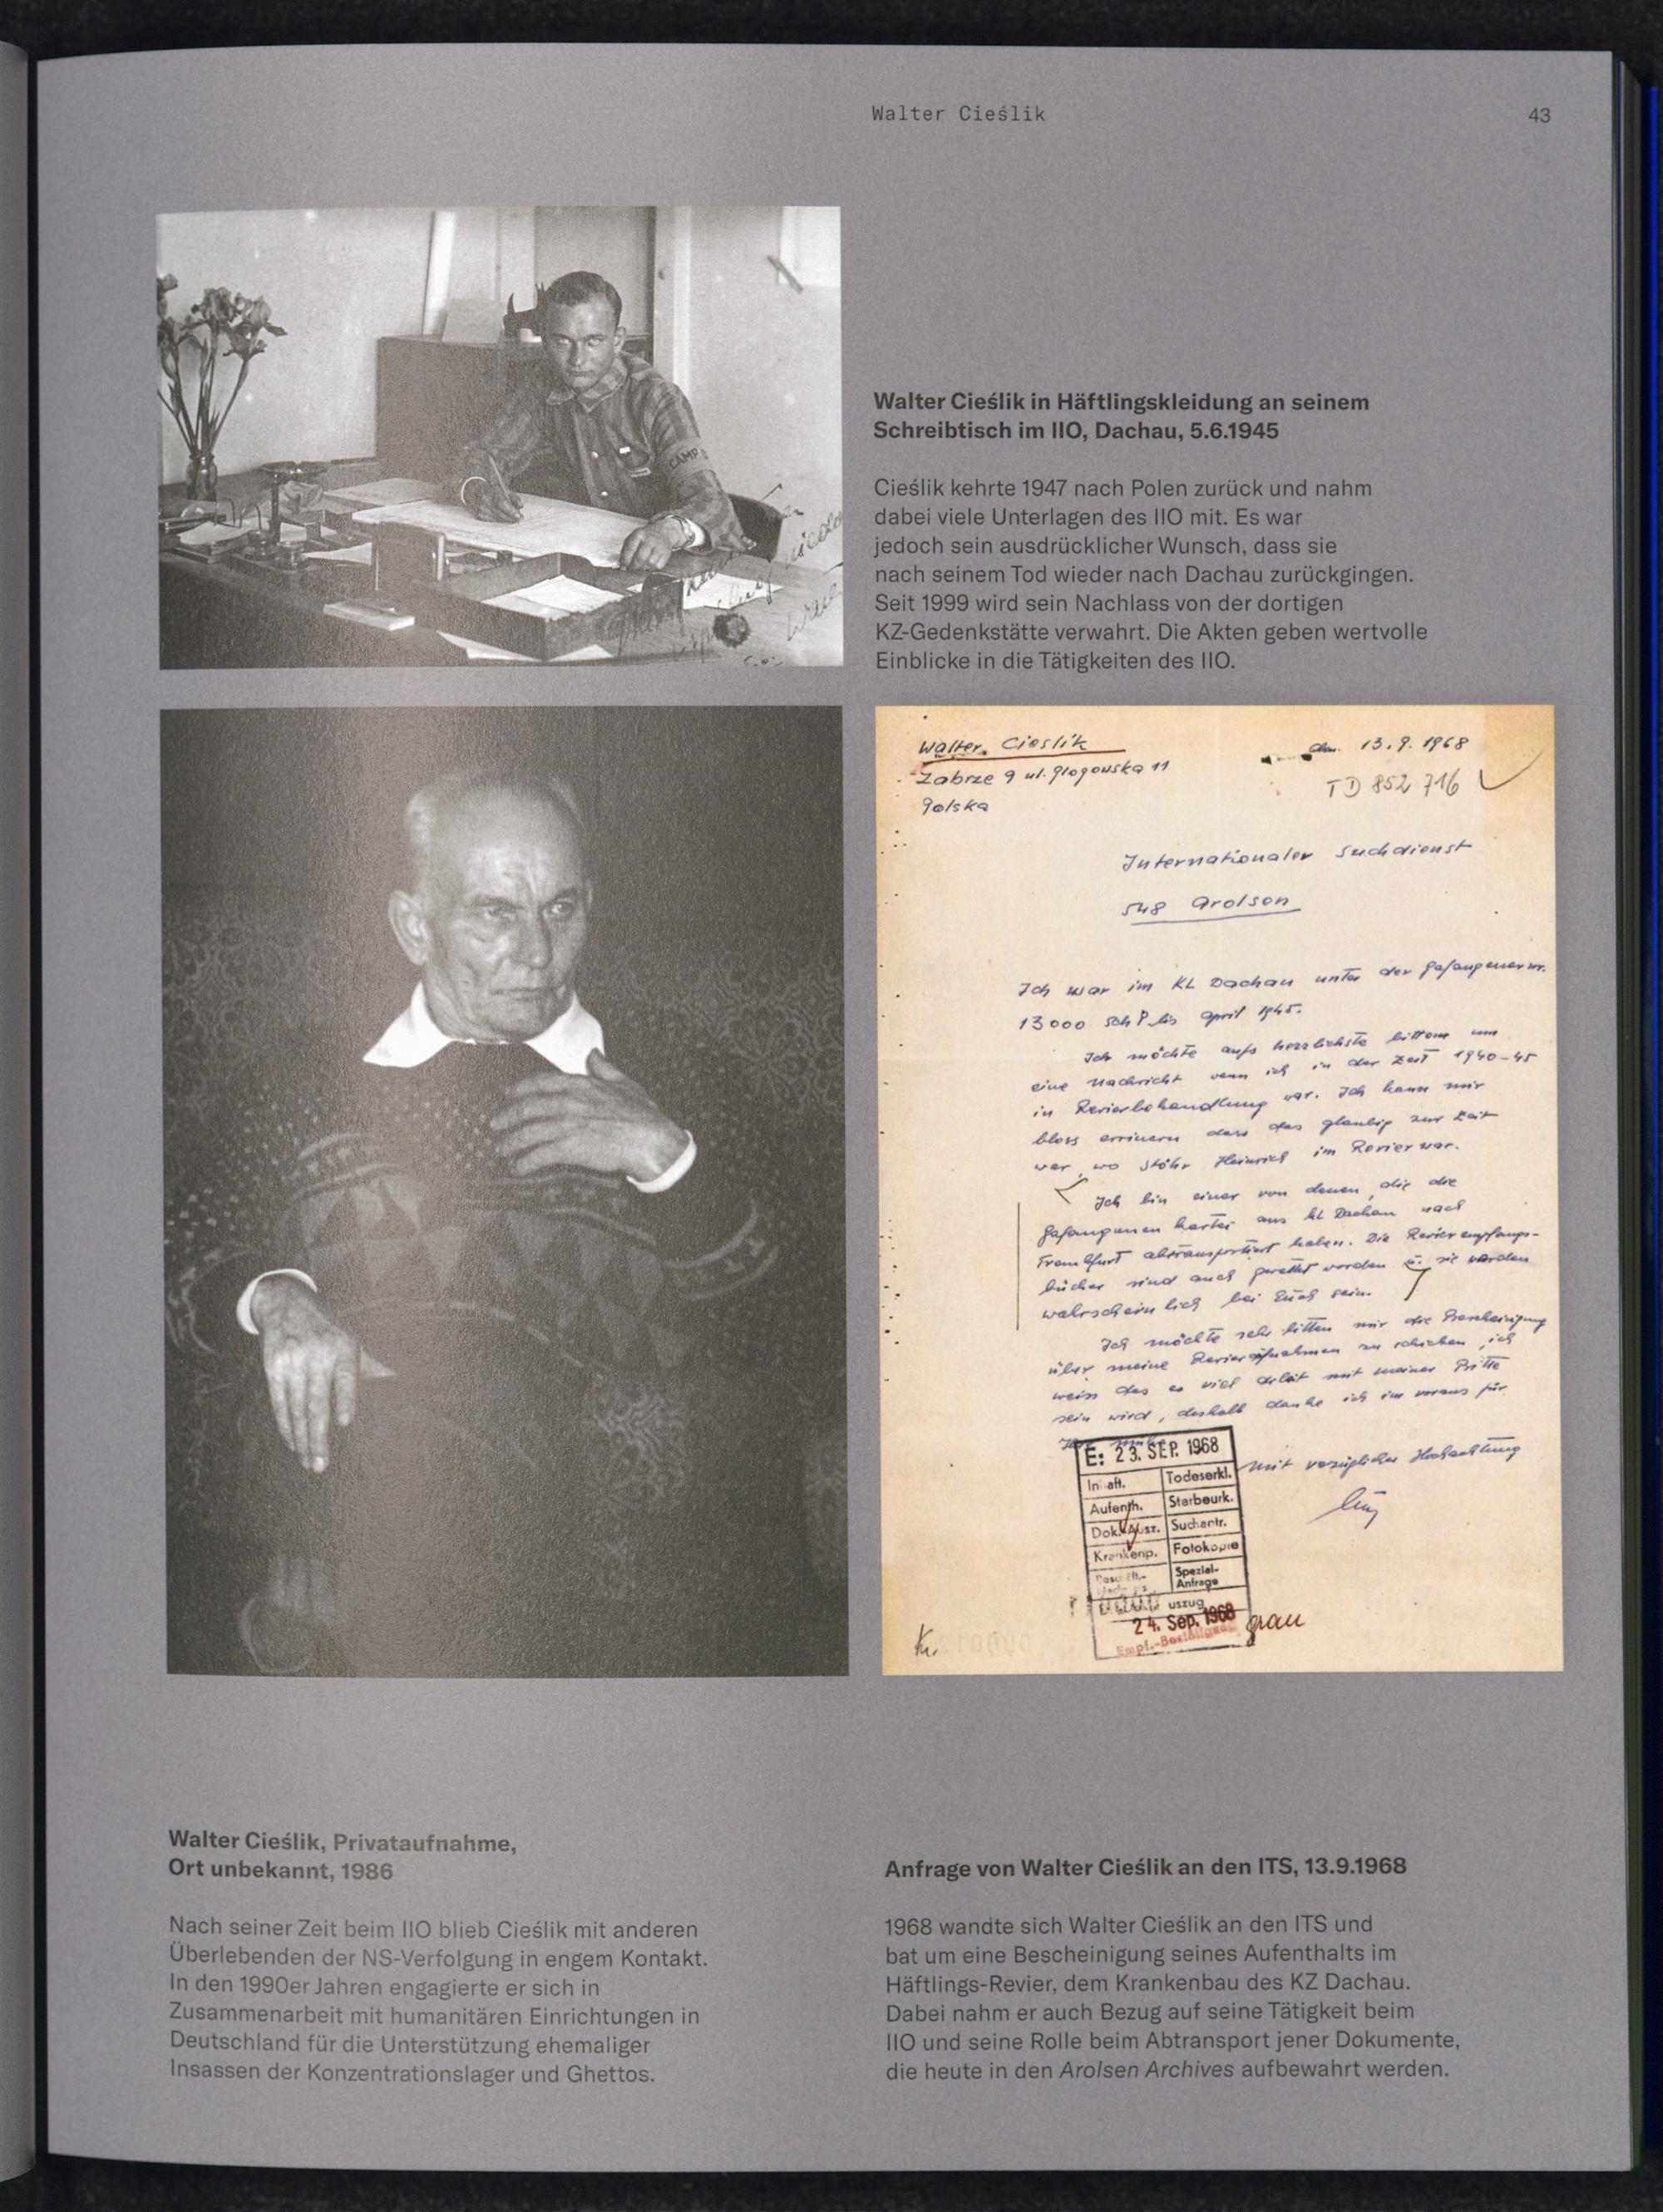 Walter Cieślik
43
CAMP
Walter Cieślik in Häftlingskleidung an seinem
Schreibtisch im IIO, Dachau, 5.6.1945
Cieślik kehrte 1947 nach Polen zurück und nahm
dabei viele Unterlagen des IIO mit. Es war
jedoch sein ausdrücklicher Wunsch, dass sie
nach seinem Tod wieder nach Dachau zurückgingen.
Seit 1999 wird sein Nachlass von der dortigen
KZ-Gedenkstätte verwahrt. Die Akten geben wertvolle
Einblicke in die Tätigkeiten des IIO.
Walter. Cieslik
Zabrze 9 ul. Glogowska 11
Polska
den 13.9.1968
TD 852 716
Internationaler Suchdienst
548 Arolsen
Ich war im KL Dachau unter der Gefangenennr.
13000 Sch P. bis April 1945.
Ich möchte aufs herzlichste bitten um
eine Nachricht wenn ich in der Zeit 1940-45
in Revierbehandlung war. Ich kann mir
bloss errinern dass das glaubig zur Zeit
war, wo Stöhr Heinrich im Revier war.
Ich bin einer von denen, die die
Gefangenen kartei aus KL Dachau nach
Frankfurt abtransportiert haben. Die Revierempfangs-
bücher sind auch gerettet worden u. sie werden
wahrscheinlich bei Euch sein.
Ich möchte sehr bitten mir die Bescheinigung
über meine Revieraufnahmen zu schicken, ich
weiss das es viel Arbeit mit meiner Bitte
sein wird, deshalb danke ich im voraus für
Ihre Mühe
mit vorzüglicher Hochachtung
E: 23. SEP. 1968
Inhaft.
Todeserkl.
Aufenth.
Sterbeurk.
Dok. Ausz.
Suchantr.
Krankenp.
Fotokopie
Spezial-
Anfrage
uszug
24. Sep. 1968
Empf.-Bestätigung
grau
Kr.
Walter Cieślik, Privataufnahme,
Ort unbekannt, 1986
Nach seiner Zeit beim IIO blieb Cieślik mit anderen
Überlebenden der NS-Verfolgung in engem Kontakt.
In den 1990er Jahren engagierte er sich in
Zusammenarbeit mit humanitären Einrichtungen in
Deutschland für die Unterstützung ehemaliger
Insassen der Konzentrationslager und Ghettos.
Anfrage von Walter Cieślik an den ITS, 13.9.1968
1968 wandte sich Walter Cieślik an den ITS und
bat um eine Bescheinigung seines Aufenthalts im
Häftlings-Revier, dem Krankenbau des KZ Dachau.
Dabei nahm er auch Bezug auf seine Tätigkeit beim
IIO und seine Rolle beim Abtransport jener Dokumente,
die heute in den Arolsen Archives aufbewahrt werden.